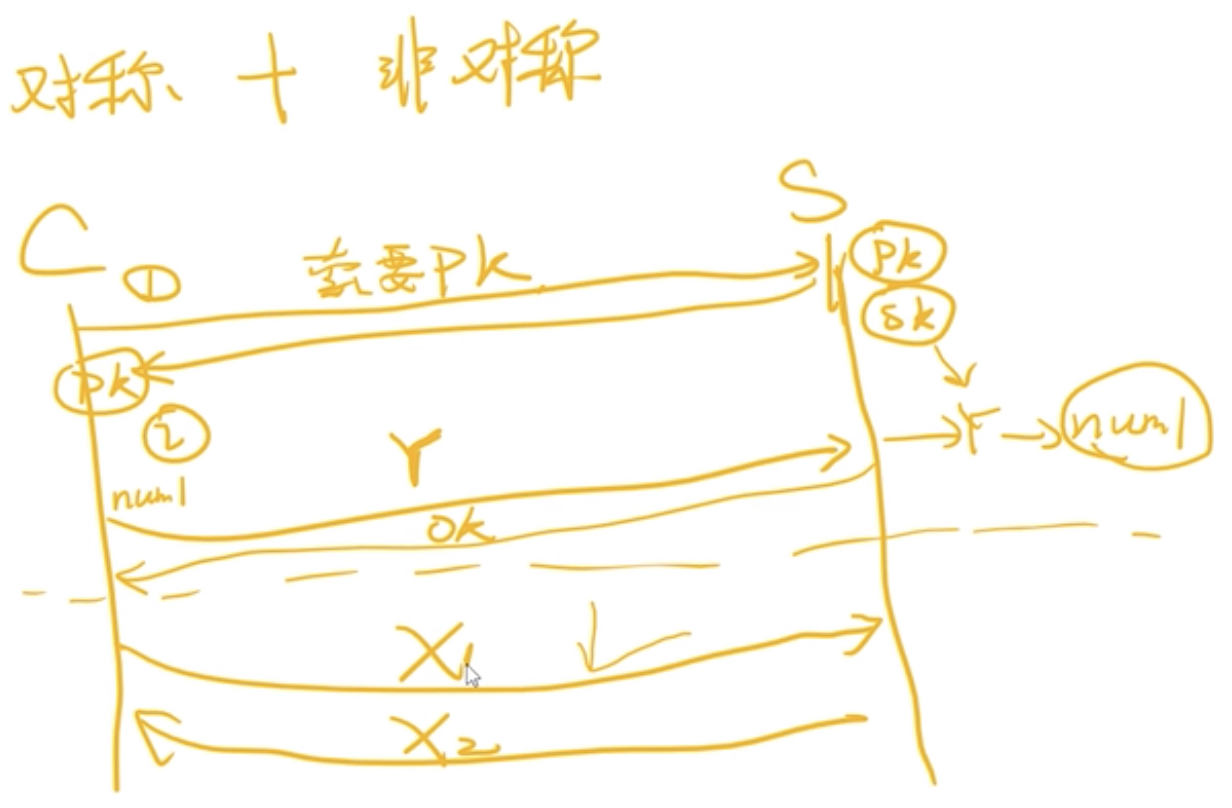 对称 + 非对称
C
S
① 索要pk
pk
sk
pk
②
Y
Y
num1
num1
ok
X1
X2